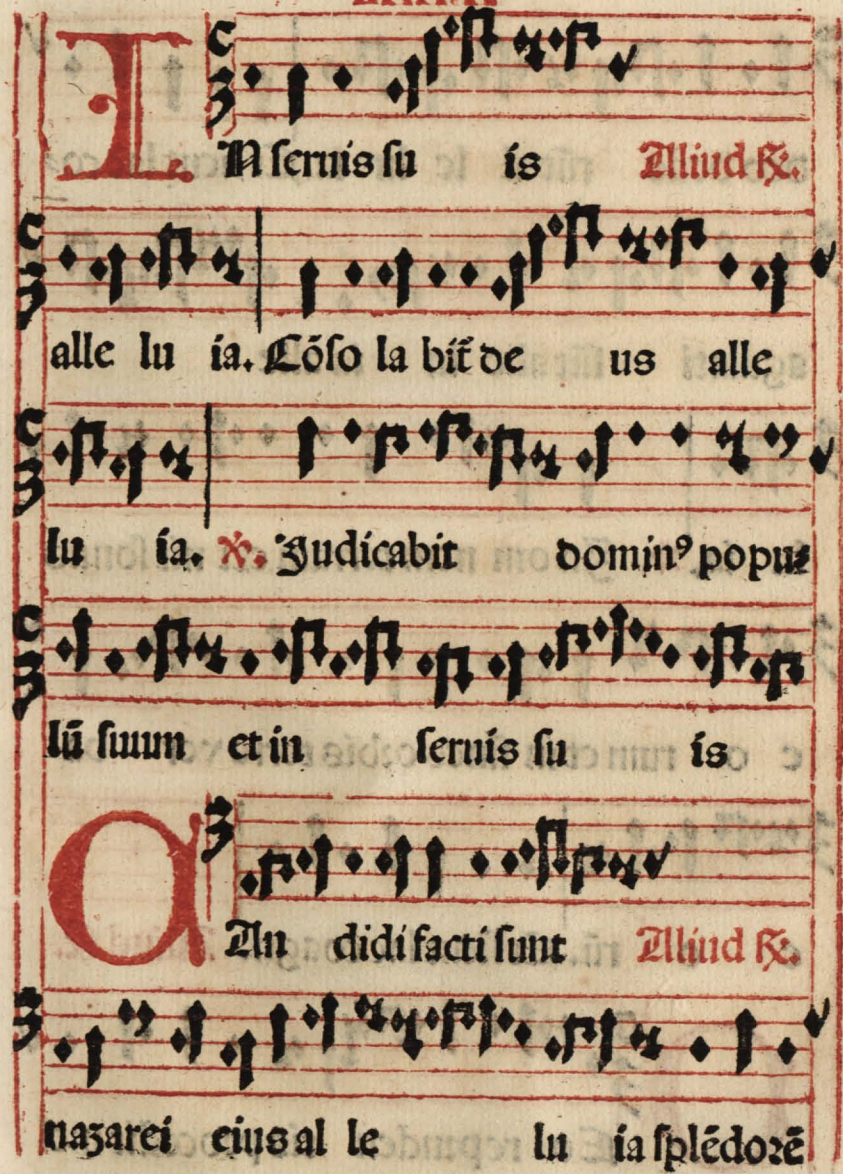 IN seruis su is Aliud ℟.
alle lu ia. Cōso la bit̃ de us alle
lu ia. ℣. Judicabit dominꝰ popu⸗
lū suum et in seruis su is
CAn didi facti sunt Aliud ℟.
nazarei eius al le lu ia splēdorē